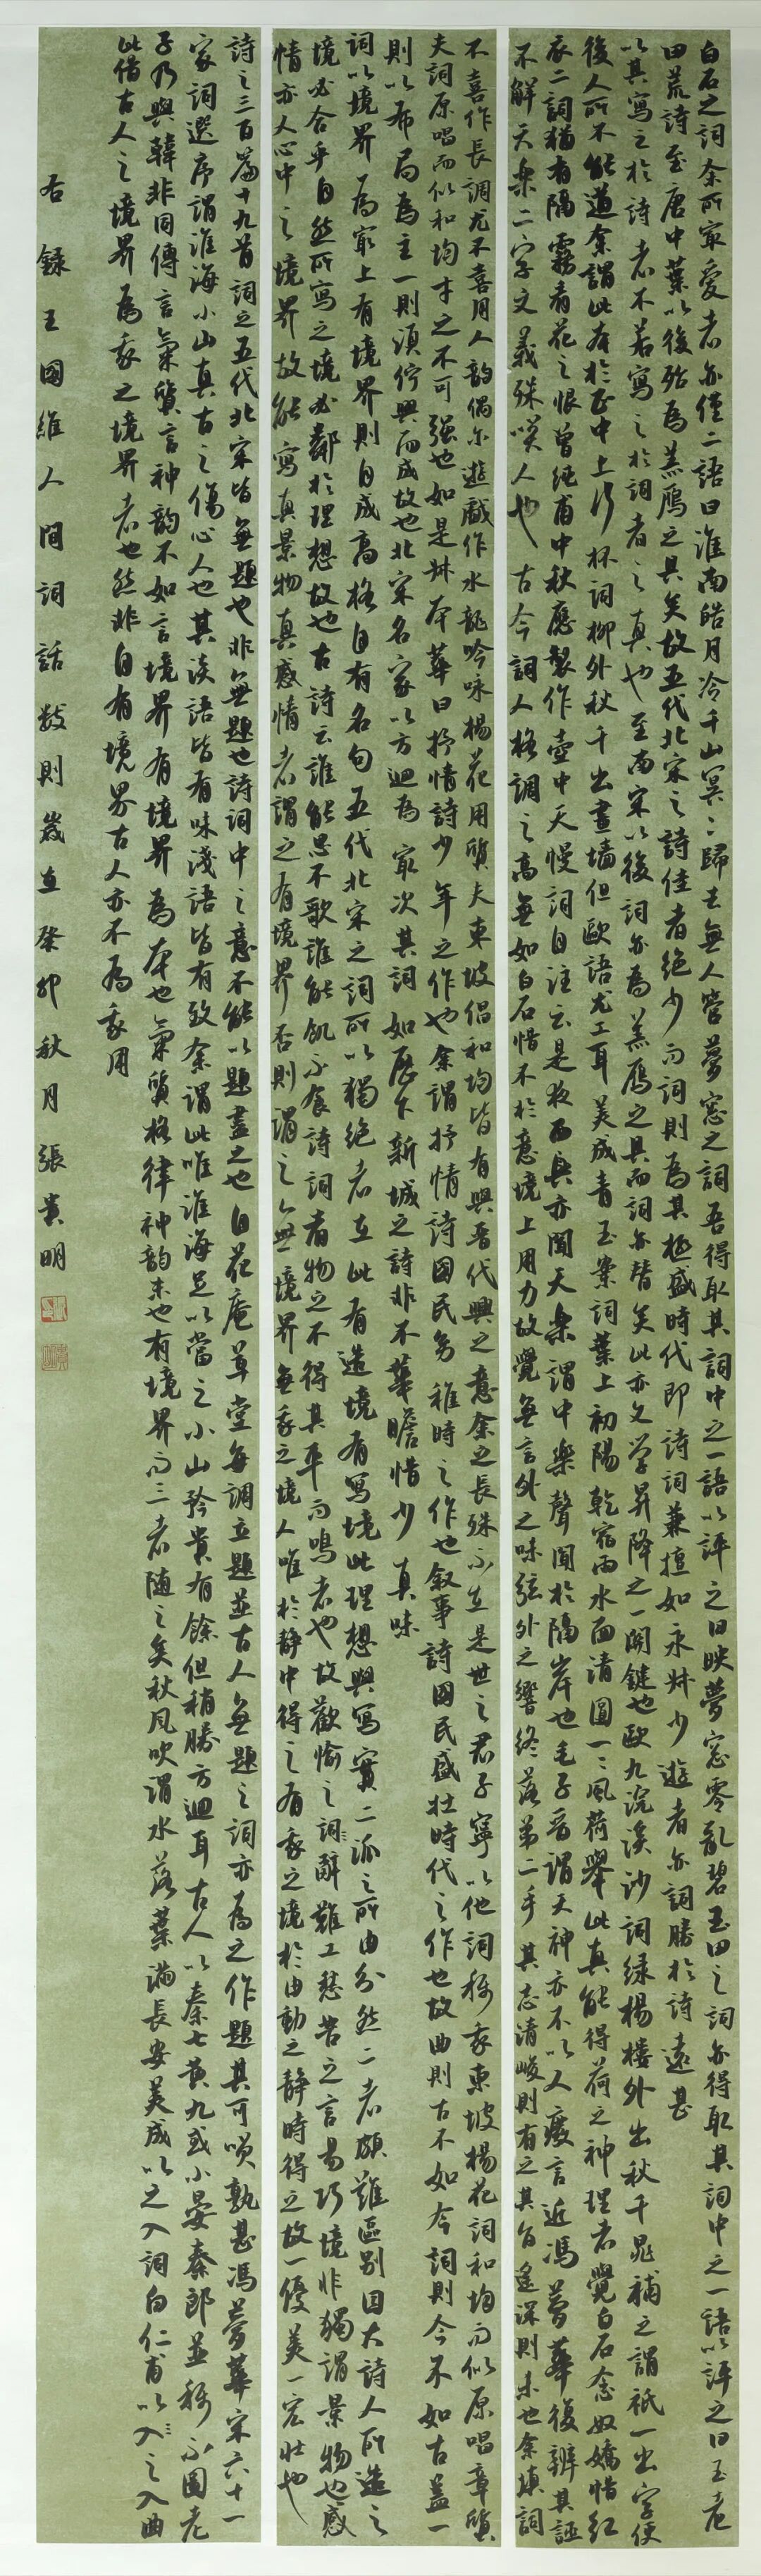 白石之詞余所最愛者亦僅二語曰淮南皓月冷千山冥冥歸去無人管夢窓之詞吾得取其詞中之一語以評之曰映夢窓零亂碧玉田之詞亦得取其詞中之一語以評之曰玉老
田荒詩至唐中葉以後殆為羔雁之具矣故五代北宋之詩佳者絕少而詞則為其極盛時代即詩詞兼擅如永叔少遊者亦詞勝於詩遠甚
以其寫之於詩者不若寫之於詞者之真也至南宋以後詞亦為羔雁之具而詞亦替矣此亦文學昇降之一關鍵也歐九浣溪沙詞綠楊樓外出秋千晁補之謂祇一出字便
後人所不能道余謂此本於正中上行杯詞柳外秋千出畫墻但歐語尤工耳美成青玉案詞葉上初陽乾宿雨水面清圓一一風荷舉此真能得荷之神理者覺白石念奴嬌惜紅
衣二詞猶有隔霧看花之恨曾純甫中秋應製作壺中天慢詞自注云是夜西興亦聞天樂謂中樂聲聞於隔岸也毛子晉謂天神亦不以人廢言近馮夢華復辨其誣
不解天樂二字文義殊笑人也 古今詞人格調之高無如白石惜不於意境上用力故覺無言外之味弦外之響終落第二手其志清峻則有之其旨遙深則未也余填詞
不喜作長調尤不喜用人韵偶爾遊戲作水龍吟咏楊花用質夫東坡倡和均皆有與晉代興之意余之長殊不在是世之君子寧以他詞稱我東坡楊花詞和均而似原唱章質
夫詞原唱而似和均才之不可強也如是叔本華曰抒情詩少年之作也余謂抒情詩國民幼稚時之作也叙事詩國民盛壯時代之作也故曲則古不如今詞則今不如古蓋一
則以布局為主一則須佇興而成故也北宋名家以方廻為最次其詞如歷下新城之詩非不華瞻惜少真味
詞以境界為最上有境界則自成高格自有名句五代北宋之詞所以獨絕者在此有造境有寫境此理想與寫實二派之所由分然二者頗難區別因大詩人所造之
境必合乎自然所寫之境必鄰於理想故也古詩云誰能思不歌誰能飢不食詩詞者物之不得其平而鳴者也故歡愉之詞辭難工愁苦之言易巧境非獨謂景物也感
情亦人心中之境界故能寫真景物真感情者謂之有境界否則謂之無境界無我之境人唯於靜中得之有我之境於由動之靜時得之故一優美一宏壯也
詩之三百篇十九首詞之五代北宋皆無題也非無題也詩詞中之意不能以題盡之也自花庵草堂每調立題並古人無題之詞亦為之作題其可笑孰甚馮夢華宋六十一
家詞選序謂淮海小山真古之傷心人也其淡語皆有味淺語皆有致余謂此唯淮海足以當之小山矜貴有餘但稍勝方廻耳古人以秦七黄九或小晏秦郎並稱不圖老
子乃與韓非同傳言氣質言神韵不如言境界有境界為本也氣質格律神韵末也有境界而三者隨之矣秋風吹渭水落葉滿長安美成以之入詞白仁甫以入之入曲
此借古人之境界為我之境界者也然非自有境界古人亦不為我用
右錄王國維人間詞話數則歲在癸卯秋月張貴明